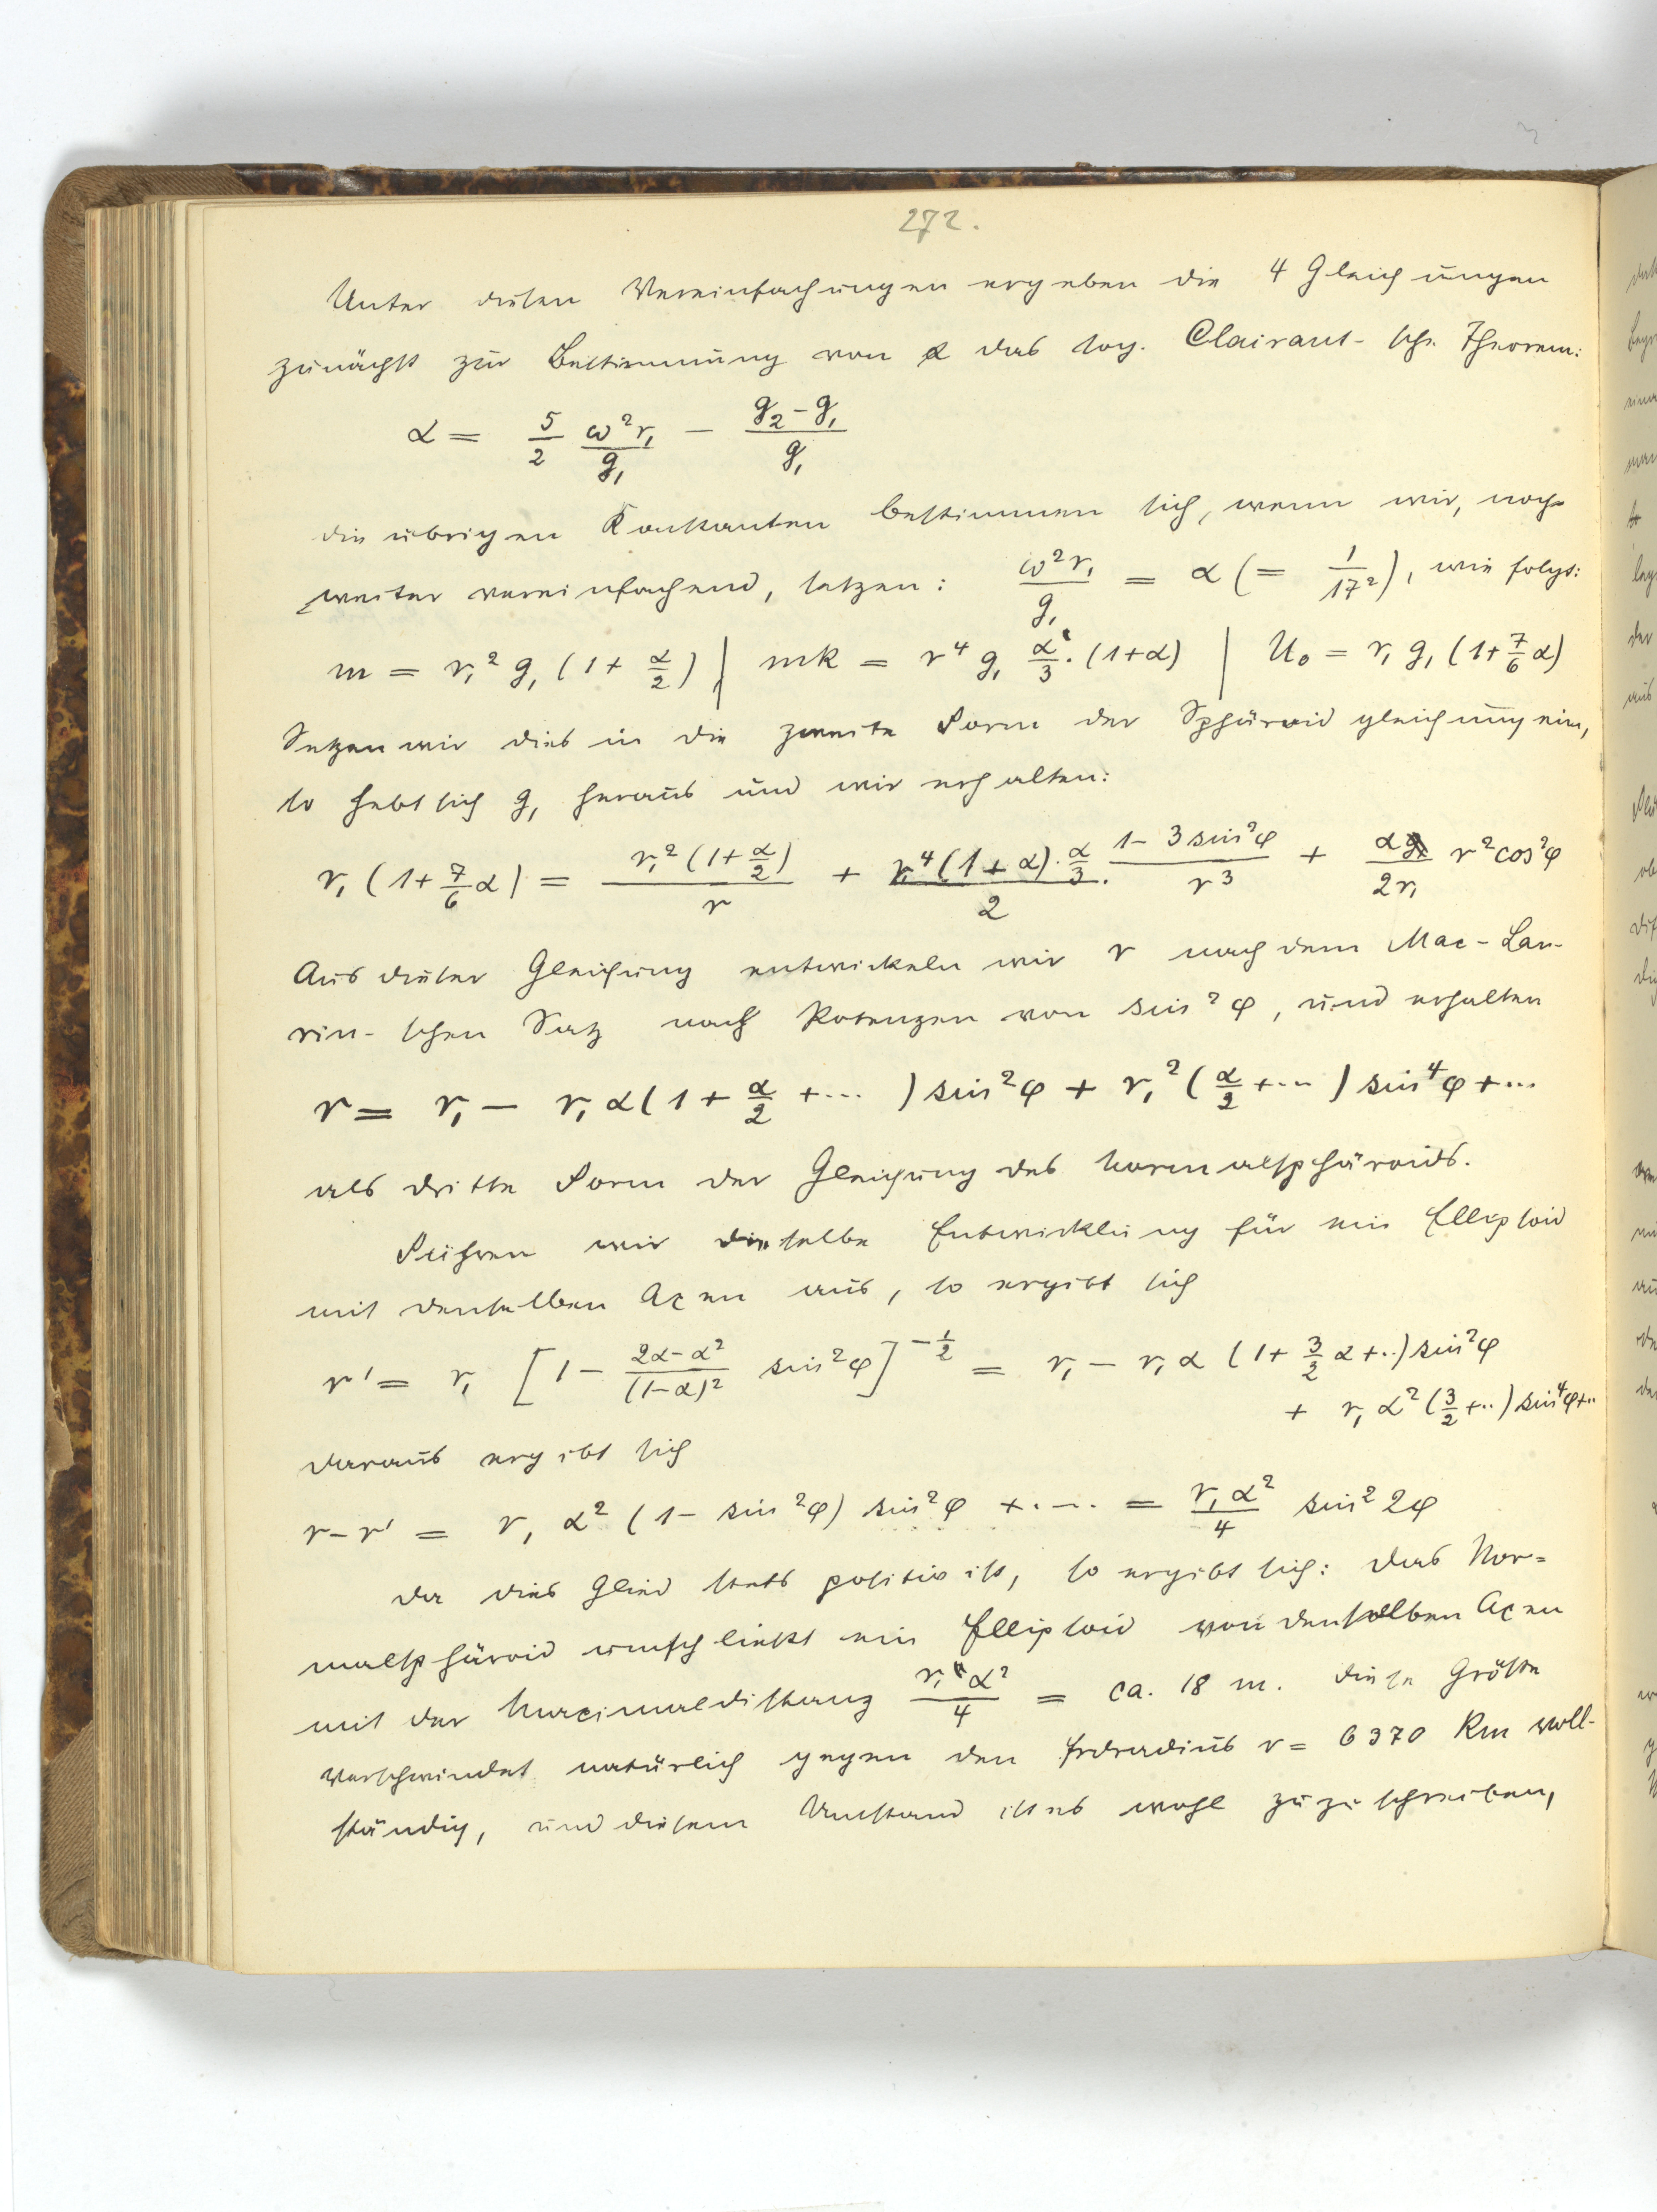 272.
Unter diesen Vereinfachungen ergeben die 4 Gleichungen
zunächst zur Bestimmung von α das sog. Clairaut-sche Theorem:
α = 5/2 ω²r₁/g₁ − (g₂ − g₁)/g₁
die übrigen Konstanten bestimmen sich, wenn wir, noch
weiter vereinfachend, setzen: ω²r₁/g₁ = α (= 1/17²), wie folgt:
m = r₁² g₁ (1 + α/2) | mk = r⁴ g₁ α/3 · (1+α) | U₀ = r₁ g₁ (1 + 7/6 α)
Setzen wir dies in die zweite Form der Sphäroidgleichung ein,
so hebt sich g₁ heraus und wir erhalten:
r₁ (1 + 7/6 α) = r₁² (1 + α/2)/r + r₁⁴ (1 + α) · α/3 /2 · (1 − 3 sin²φ)/r³ + α/2r₁ r² cos²φ
Aus dieser Gleichung entwickeln wir r nach dem Mac-Lau-
rin-schen Satz nach Potenzen von sin²φ, und erhalten
r = r₁ − r₁ α (1 + α/2 + ...) sin²φ + r₁² (α/2 + ...) sin⁴φ + ...
als dritte Form der Gleichung des Normalsphäroids.
Führen wir dieselbe Entwicklung für ein Ellipsoid
mit denselben Axen aus, so ergibt sich
r' = r₁ [1 − (2α − α²)/(1−α)² sin²φ]^(−1/2) = r₁ − r₁ α (1 + 3/2 α + ..) sin²φ
+ r₁ α² (3/2 + ..) sin⁴φ + ..
daraus ergibt sich
r − r' = r₁ α² (1 − sin²φ) sin²φ + .... = r₁ α²/4 sin² 2φ
da dies Glied stets positiv ist, so ergibt sich: das Nor=
malsphäroid umschließt ein Ellipsoid von denselben Axen
mit der Maximaldistanz r₁ α²/4 = ca. 18 m. diese Größe
verschwindet natürlich gegen den Erdradius r = 6370 Km voll-
ständig, und diesem Umstand ist es wohl zuzuschreiben,